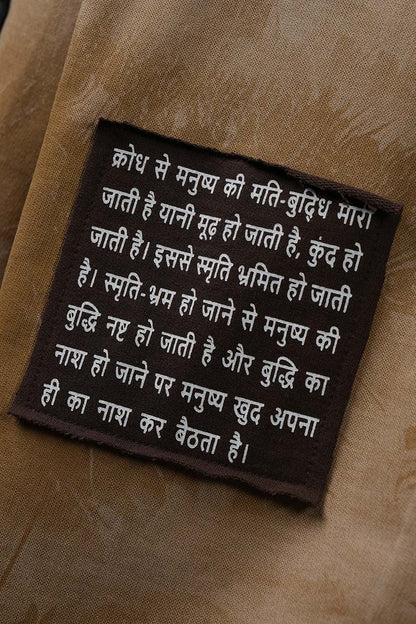 क्रोध से मनुष्य की मति-बुद्धि मारी
जाती है यानी मूढ़ हो जाती है, कुंद हो
जाती है। इससे स्मृति भ्रमित हो जाती
है। स्मृति-भ्रम हो जाने से मनुष्य की
बुद्धि नष्ट हो जाती है और बुद्धि का
नाश हो जाने पर मनुष्य खुद अपना
ही का नाश कर बैठता है।